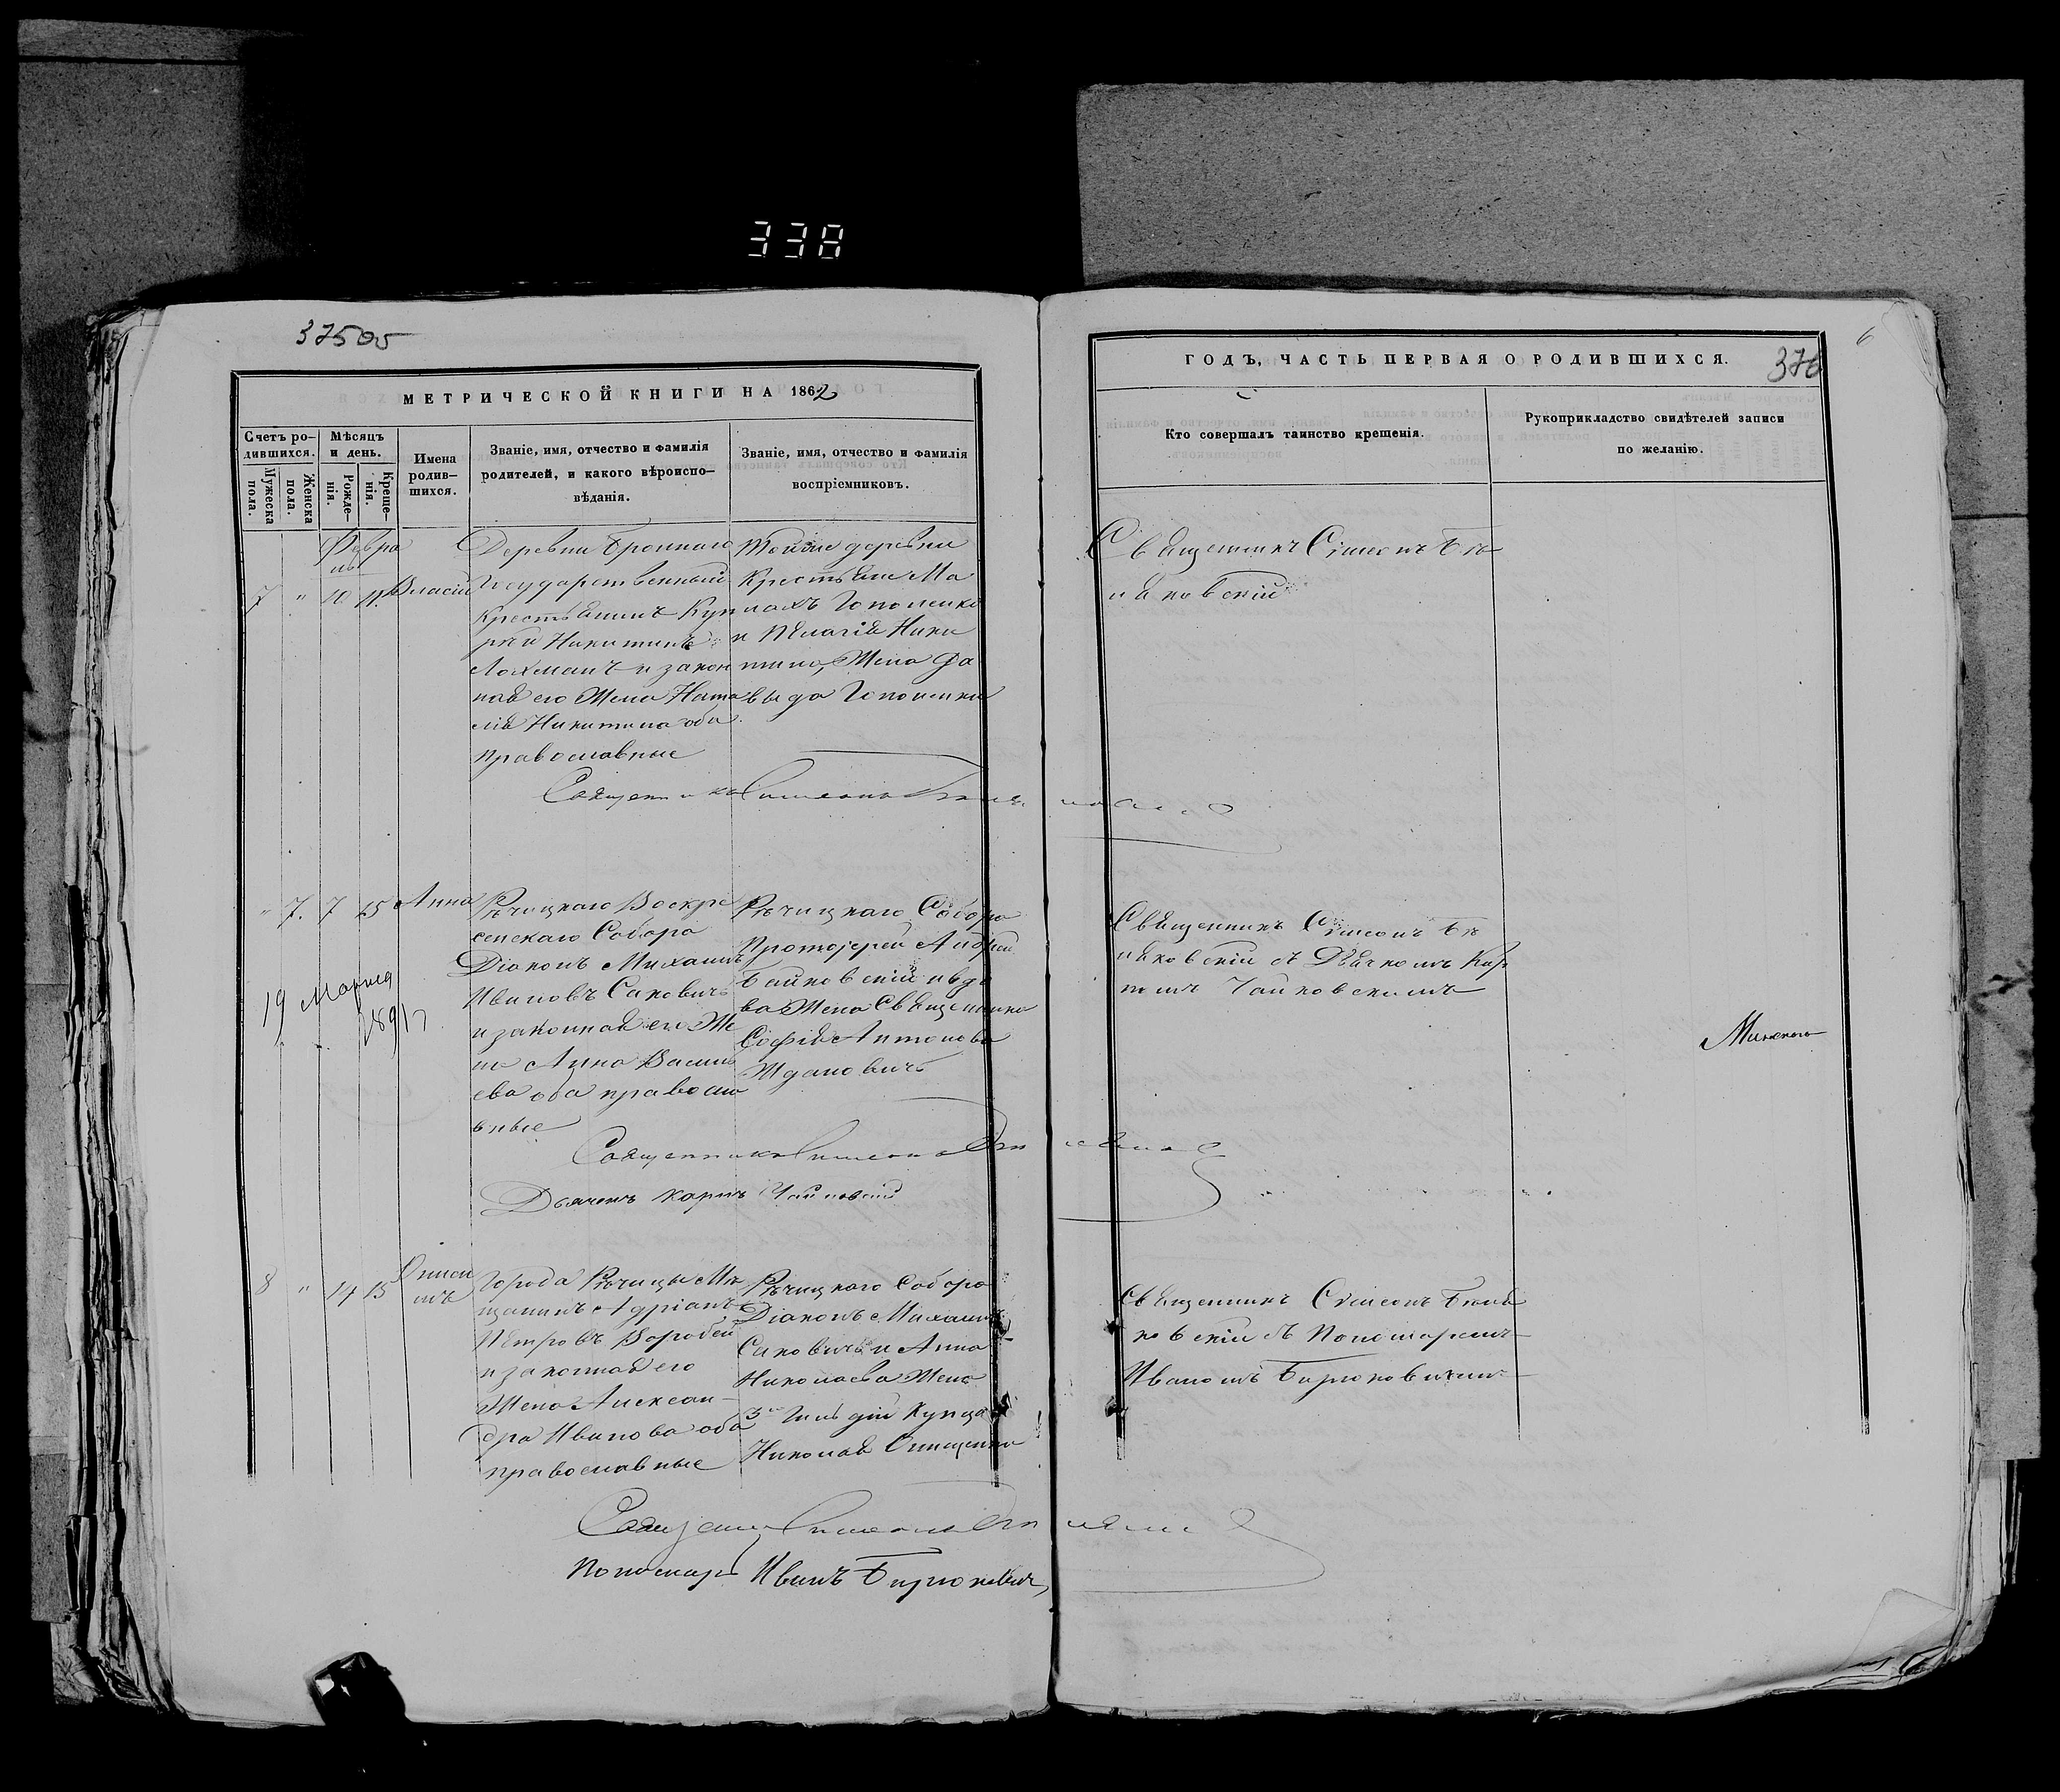 338
375об
МЕТРИЧЕСКОЙ КНИГИ НА 1862
Счетъ ро-
дившихся.
Мужеска
пола.
Женска
пола.
Мѣсяцъ
и день.
Рожде-
нія.
Креще-
нія.
Имена
родив-
шихся.
Званіе, имя, отчество и фамилія
родителей, и какого вѣроиспо-
вѣданія.
Званіе, имя, отчество и фамилія
воспріемниковъ.
Февра
ль
7 " 10 11. Власій
Деревни Бронного
Государственный
Крестьянинъ Кип
рей Никитинъ
Лохманъ и закон
ная его Жена Ната
лія Никитина оба
православные
Тойже деревни
Крестьяне Ма
лахъ Гопоненко
и Пелагія Ники
тина, Жена Да
выда Гопоненки
Священникъ Симеонъ
" 7. 7 15 Анна
Рѣчицкаго Воскре
сенскаго Собора
Діаконъ Михаилъ
Ивановъ Саковичъ
и законная его Же
на Анна Василь
ева оба правосла
вные
Рѣчицкаго Собора
Протоіерей Андрей
Байковскій и вдо
ва Жена Священника
Софія Антонова
Ждановичъ
19 Марта
1891 г
Священникъ Симеонъ
Дьячекъ Карпъ Чайковскій
8 " 14 15 Ониси
мъ
Города Рѣчицы Мѣ
щанинъ Адріанъ
Петровъ Воробей
и законная его
Жена Алексан-
дра Иванова оба
православные
Рѣчицкаго Собора
Діаконъ Михаилъ
Саковичъ и Анна
Николаева Жена
3й Гильдіи Купца
Николая Онищенки
Священникъ Симеонъ
Пономарь Иванъ Бирюковичъ
6
376
ГОДЪ, ЧАСТЬ ПЕРВАЯ О РОДИВШИХСЯ.
Кто совершалъ таинство крещенія.
Рукоприкладство свидѣтелей записи
по желанію.
Священникъ Симеонъ Бѣ
няковскій
Священникъ Симеонъ Бѣ
няковскій съ Дьячкомъ Кар
помъ Чайковскимъ
Минскаго
Священникъ Симеонъ Бѣня
ковскій съ Пономаремъ
Иваномъ Бирюковичемъ